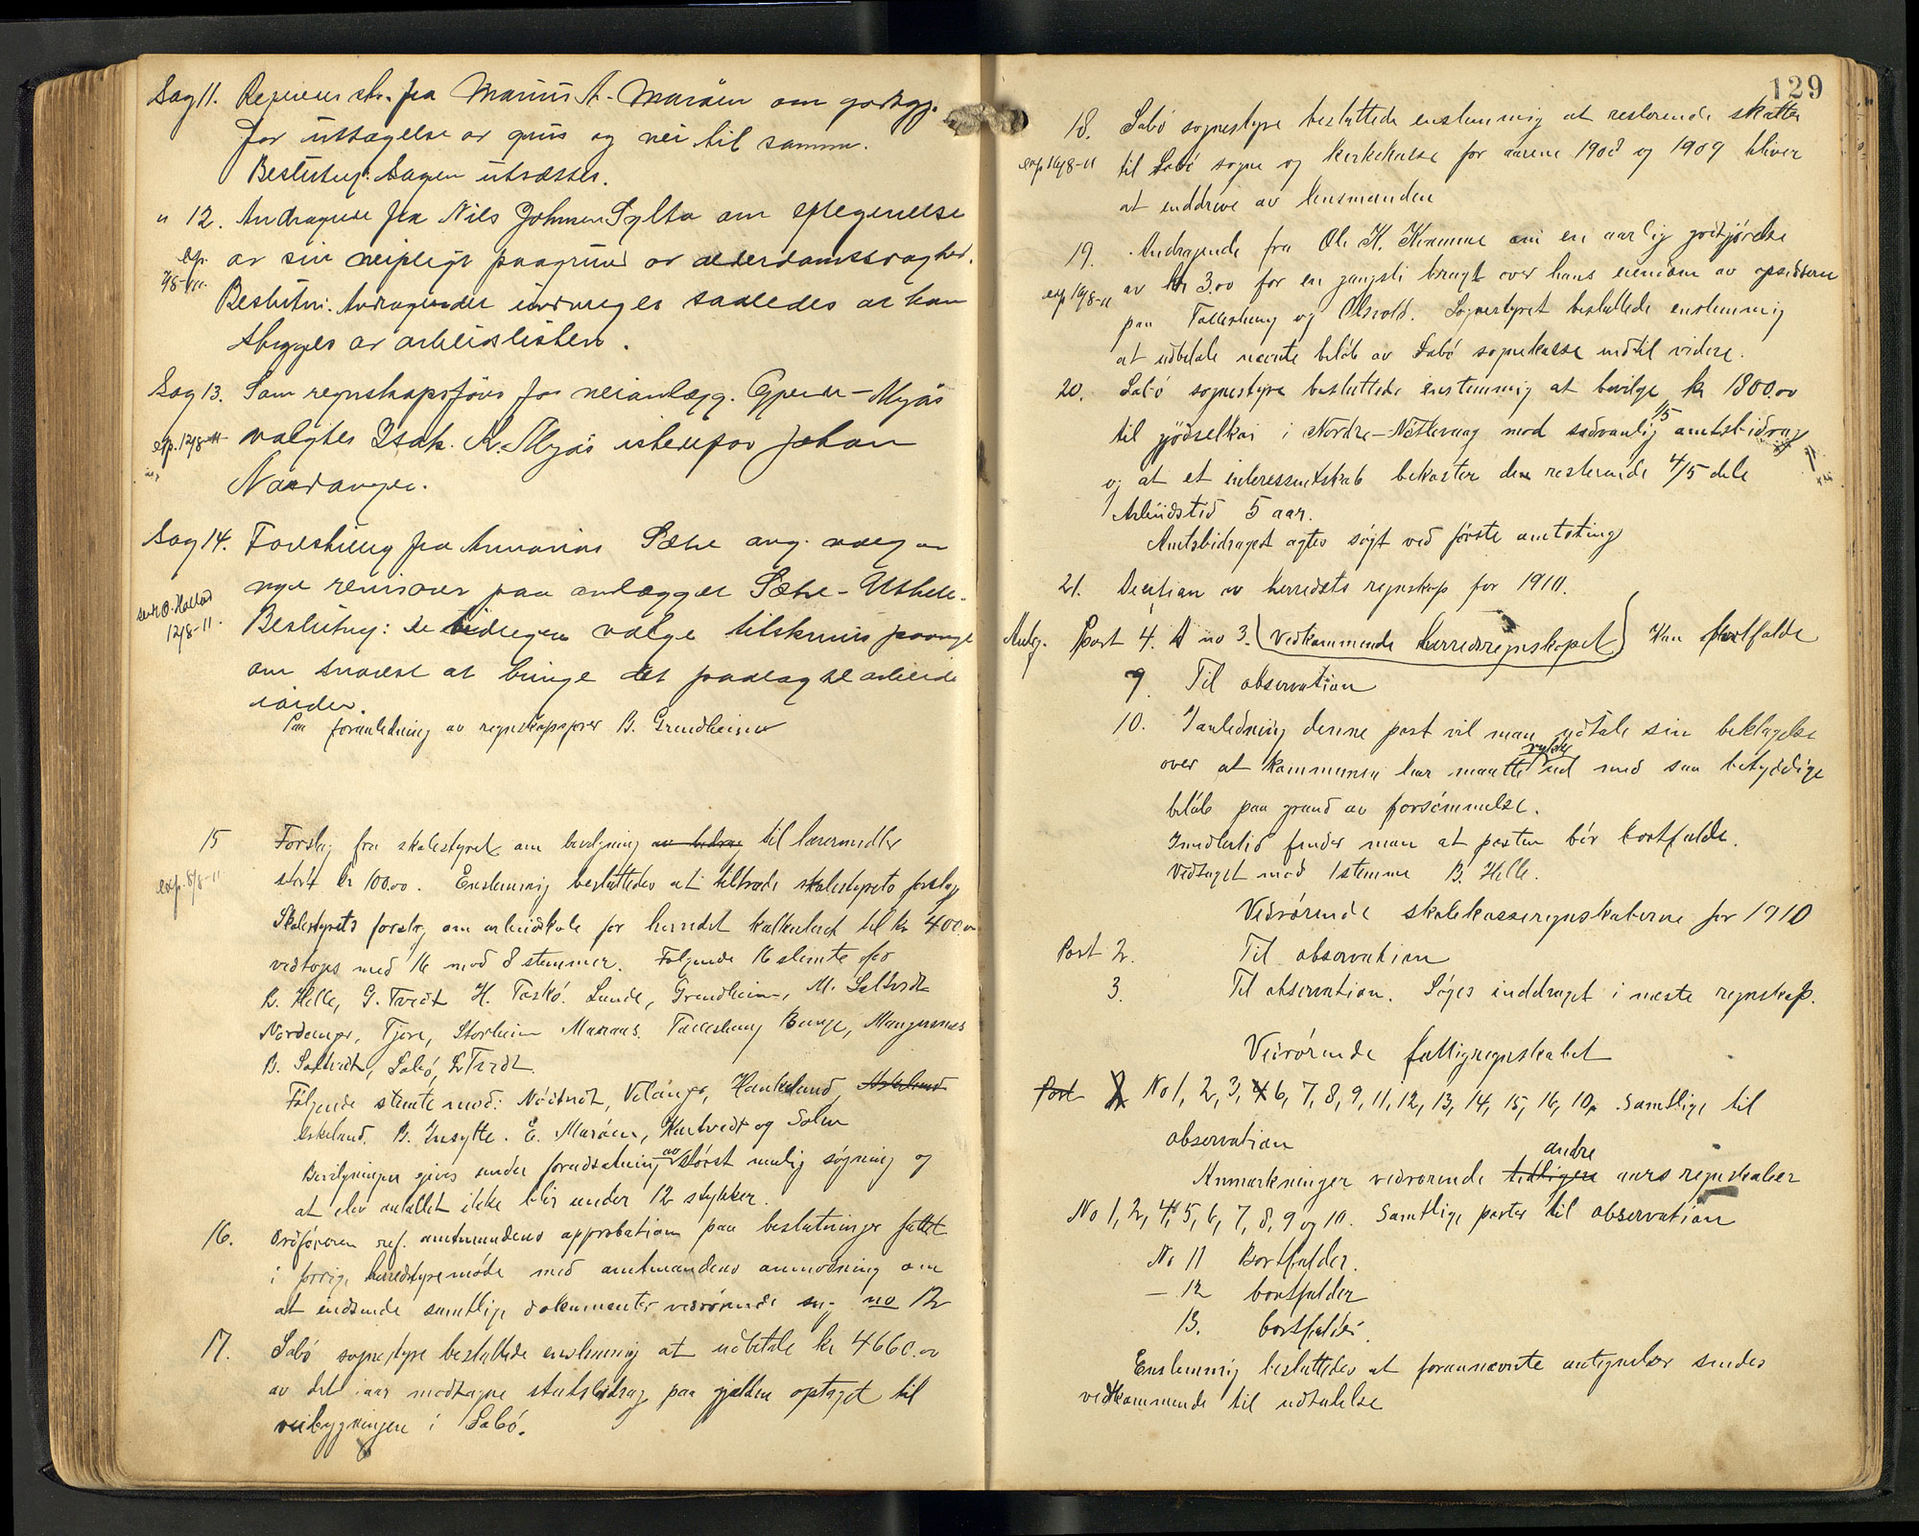 Sag 11. Regierens skr. fra Marius A. Marøen om godtgj.
for uttagelse av grus og vei til samme.
Beslutng: Sagen utsættes.
" 12. Andragende fra Nils Johnsen Sylta om eftegivelse
exp. av sin veipligt paagrund av alderdomssvaghed.
Beslutn: Andragendet indvilges saaledes at han
strygges av arbeidslisten.
Sag 13. Som regnskapsfører for veianlægg. Gjerde – Myjås
exp. 12/8-11 valgtes Isak. K. Myjås istedenfor Johan
Nordanger.
Sag 14. Forestilling fra Annanias Sæhe ang. valg av
nye revisorer paa anlægget Sæhe – Askele.
sendt O. Helland
12/8-11.
Beslutng: De tidligere valge tilskrives paanye
om snarest at bringe det paalagte arbeide
iorden.
Paa foranledning av regnskapsfører B. Grendheim
15 Forslag fra skolestyret om bevilgning av bidrag til læremidler
exp. 8/8-11 stort kr 100.00. Enstemmig besluttedes at tiltræde skolestyrets forslag
Skolestyrets forslag om arbeidsskole for herredet kalkuleret til kr 400.00
vedtoges med 16 mod 8 stemmer. Følgende 16 stemte for
B. Helle, G. Tvedt H. Toskø. Lunde, Grendheim, M. Soltvedt
Nordanger, Tjore, Storheim Maraas. Falleshaug Bauge, Mangersnes
B. Soltvedt, Sabø, L Tvedt.
Følgende stemte mod: Nøstvedt, Velånge, Hankeland, Askeland
Eskeland. B. Insytte. E. Marøen, Kartvedt og Solen
Bevilgningen gives under forudsætning av størst mulig søgning og
at elev antallet ikke blir under 12 stykker.
16. Ordføreren ref. amtmandens approbation paa beslutninger fattet
i forrige herredstyremøde med amtmandens anmodning om
at indsende samtlige dokumenter vedrørende sag no 12
17. Sabø sognestyre besluttede enstemmig at udbetale kr 4660.00
av det iaar modtagne statsbidrag paa gjælden optaget til
veibygningen i Sabø.
129
18. Sabø sognestyre besluttede enstemmig at resterende skatter
exp 14/8-11 til Sabø sogne og kirkekasse for aarene 1908 og 1909 bliver
at inddrive av lensmanden
19. Andragende fra Ole K. Kvamme om en aarlig godtgjørelse
exp 14/8-11 av kr 3.00 for en gangsti brugt over hans eiendom av opsidderne
paa Falleshaug og Olsvold. Sognestyret besluttede enstemmig
at udbetale nævnte beløb av Sabø sognekasse indtil videre.
20. Sabø sognestyre besluttede enstemmig at bevilge kr 1800.00
til gjødselkai i Nordre – Nøtlevaag mod sædvanlig 1/5 amtsbidrag
og at et interessentskab bekoster den resterende 4/5 dele
Arbeidstid 5 aar.
Amtsbidraget agtes søgt ved første amtsting
21. Decition av herredets regnskap for 1910.
Antg. Post 4. A no 3. (vedkommende herredsregnskapet) Kan bortfalde
9. Til observation
10. I anledning denne post vil man udtale sin beklagelse
over at kommunen har maatte rykke ud med saa betyddige
beløb paa grund av forsømmelse.
Imidlertid finder man at posten bør bortfalde.
Vedtaget mod 1 stemme B. Helle.
Vedrørende skolekasseregnskaberne for 1910
Post 2. Til observation
3. Til observation. Søges inddraget i næste regnskap.
Vedrørende fattigregnskabet
Post No 1, 2, 3, 4 6, 7, 8, 9, 11, 12, 13, 14, 15, 16, 10. samtlige til
observation
Anmærkninger vedrørende tidligere andre aars regnskaber
No 1, 2, 4, 5, 6, 7, 8, 9 og 10. Samtlige poster til observation
No 11 Bortfalder.
– 12 bortfalder
13. bortfalder.
Enstemmig besluttedes at forannævnte antegnelser sendes
vedkommende til udtalelse